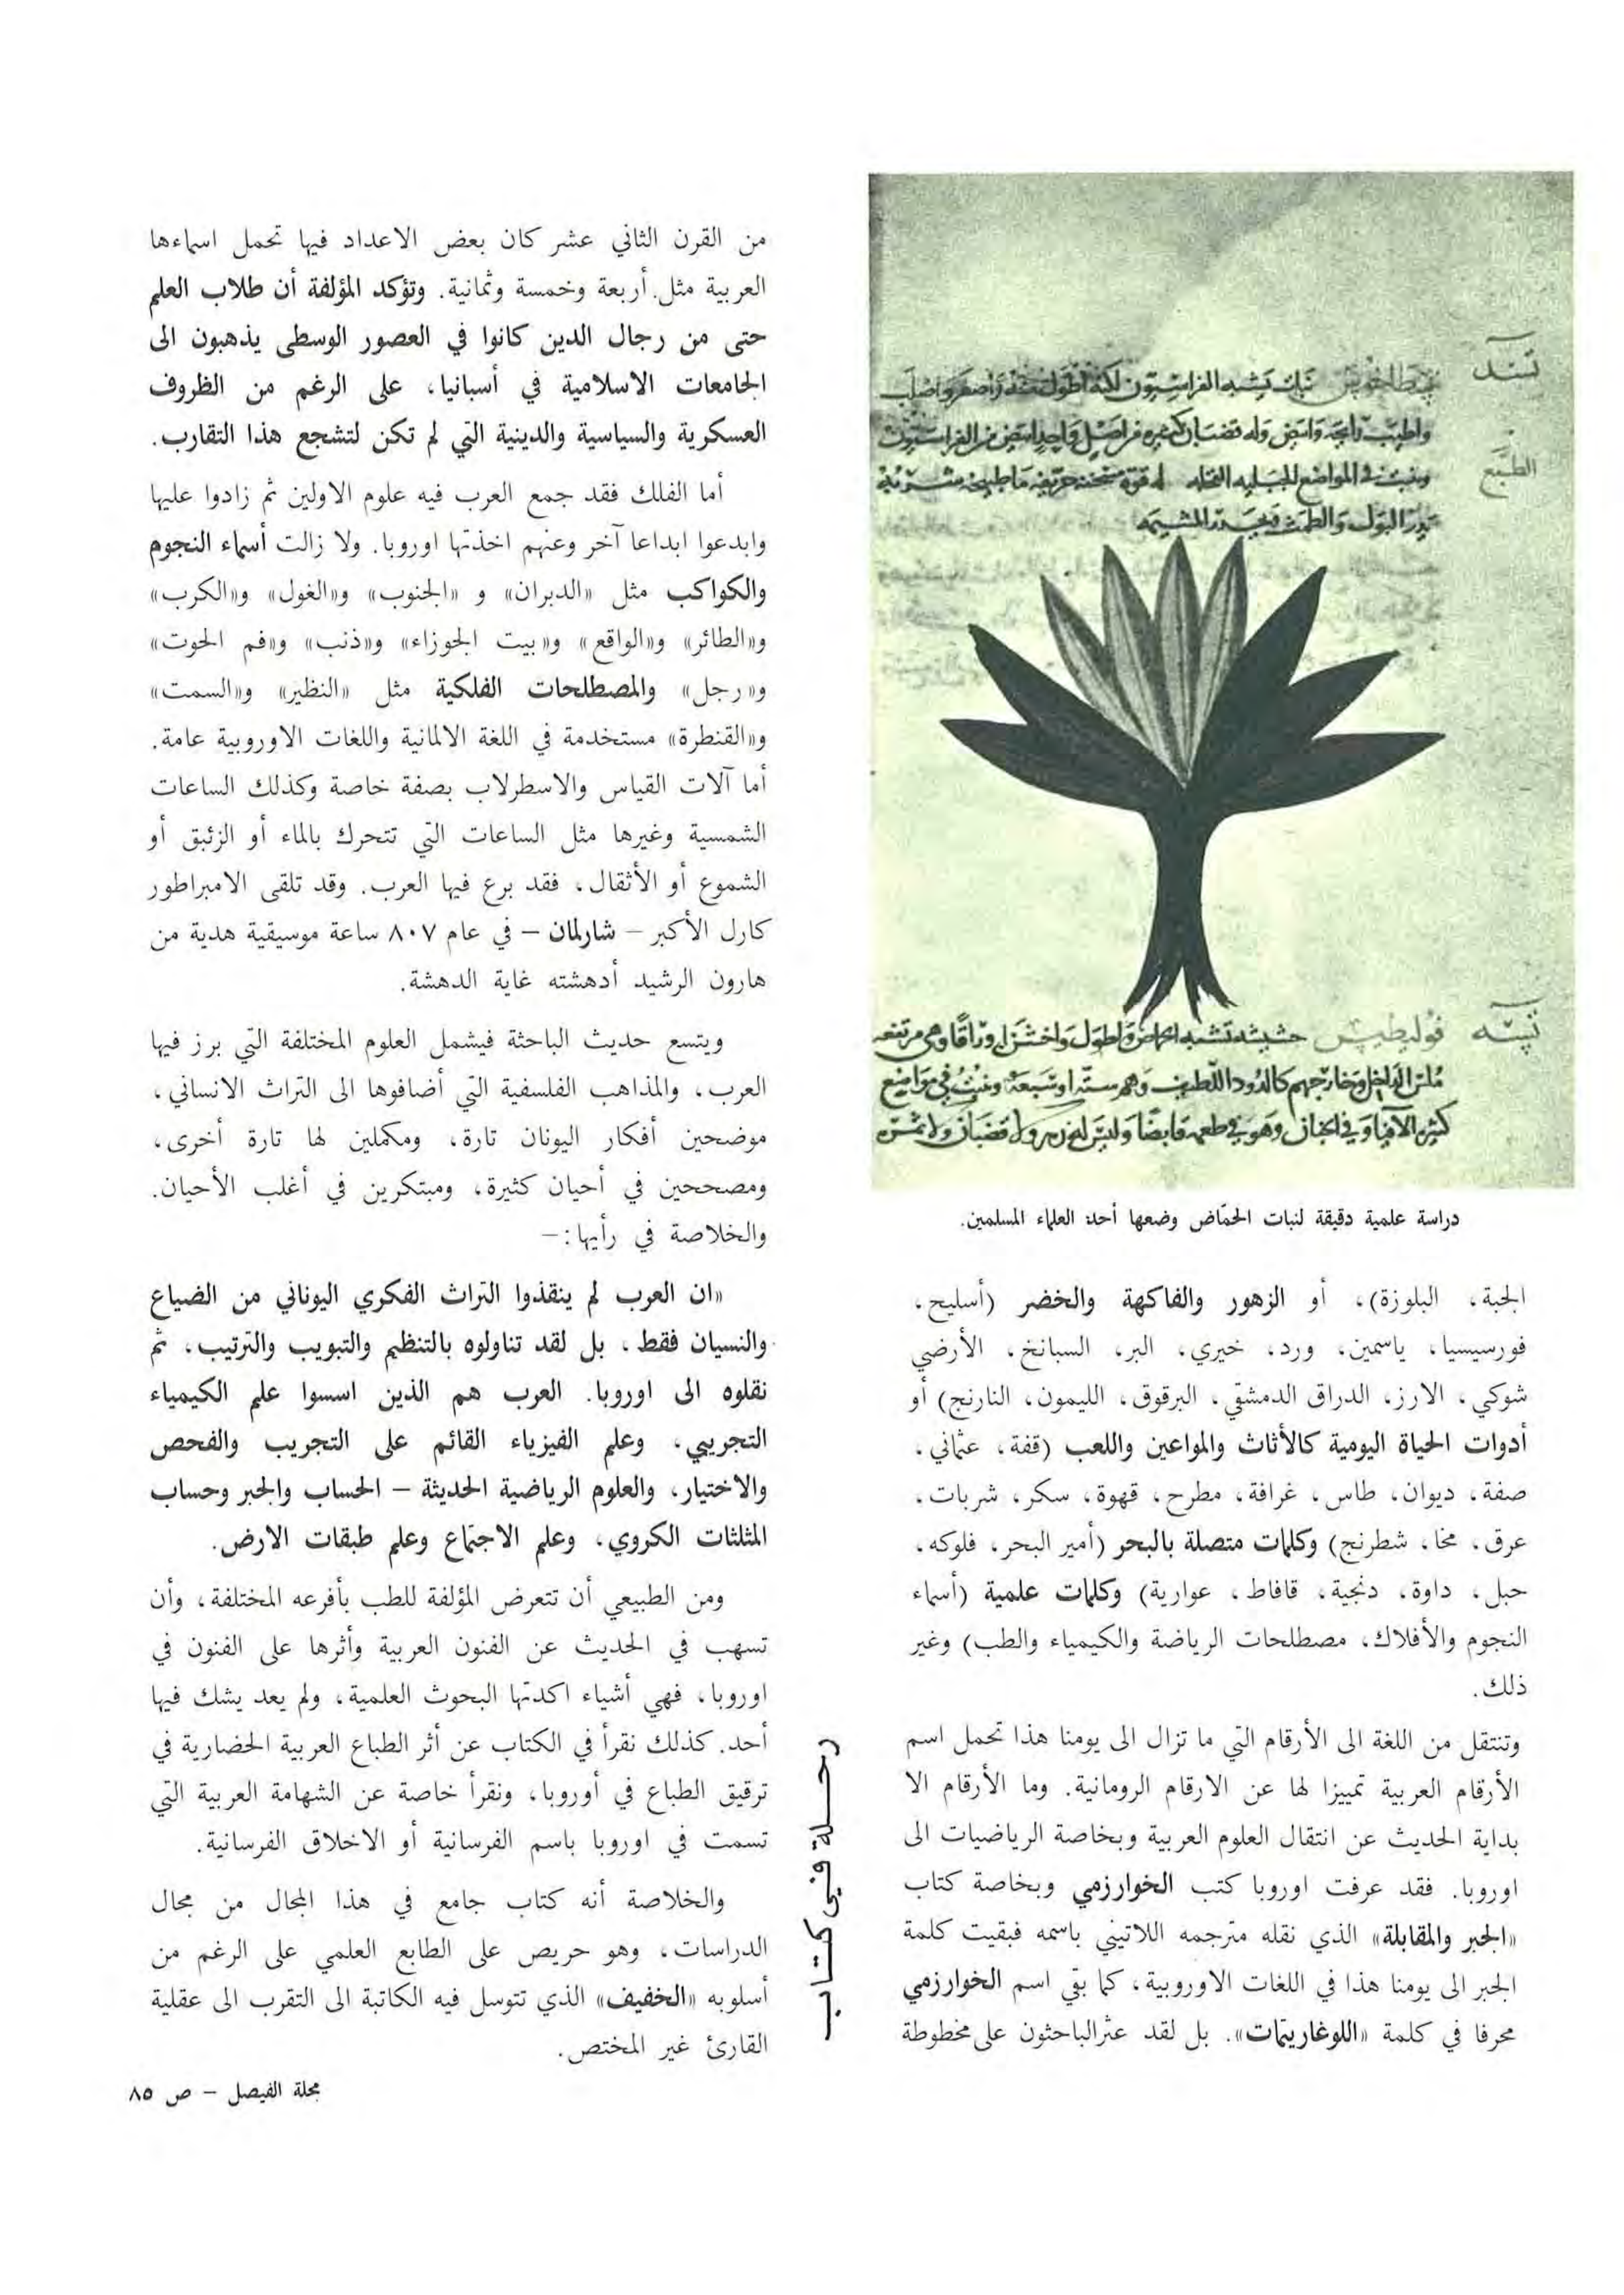 دراسة علمية دقيقة لنبات الحمّاض وضعها أحد العلماء المسلمين.
الجبة، البلوزة)، أو الزهور والفاكهة والخضر (أسليح،
فورسيسيا، ياسمين، ورد، خيري، البر، السبانخ، الأرضي
شوكي، الارز، الدراق الدمشقي، البرقوق، الليمون، النارنج) أو
أدوات الحياة اليومية كالأثاث والمواعين واللعب (قفة، عثماني،
صفة، ديوان، طاس، غرافة، مطرح، قهوة، سكر، شربات،
عرق، مخا، شطرنج) وكلمات متصلة بالبحر (أمير البحر، فلوكه،
حبل، داوة، دنجية، قافاط، عوارية) وكلمات علمية (أسماء
النجوم والأفلاك، مصطلحات الرياضة والكيمياء والطب) وغير
ذلك.
وتنتقل من اللغة الى الأرقام التي ما تزال الى يومنا هذا تحمل اسم
الأرقام العربية تمييزا لها عن الارقام الرومانية. وما الأرقام الا
بداية الحديث عن انتقال العلوم العربية وبخاصة الرياضيات الى
اوروبا. فقد عرفت اوروبا كتب الخوارزمي وبخاصة كتاب
«الجبر والمقابلة» الذي نقله مترجمه اللاتيني باسمه فبقيت كلمة
الجبر الى يومنا هذا في اللغات الاوروبية، كما بقي اسم الخوارزمي
محرفا في كلمة «اللوغاريتمات». بل لقد عثرالباحثون على مخطوطة
رحلة في كتاب
من القرن الثاني عشر كان بعض الاعداد فيها تحمل اسماءها
العربية مثل أربعة وخمسة وثمانية. وتؤكد المؤلفة أن طلاب العلم
حتى من رجال الدين كانوا في العصور الوسطى يذهبون الى
الجامعات الاسلامية في أسبانيا، على الرغم من الظروف
العسكرية والسياسية والدينية التي لم تكن لتشجع هذا التقارب.
أما الفلك فقد جمع العرب فيه علوم الاولين ثم زادوا عليها
وابدعوا ابداعا آخر وعنهم اخذتها اوروبا. ولا زالت أسماء النجوم
والكواكب مثل «الدبران» و «الجنوب» و«الغول» و«الكرب»
و«الطائر» و«الواقع» و«بيت الجوزاء» و«ذنب» و«فم الحوت»
و«رجل» والمصطلحات الفلكية مثل «النظير» و«السمت»
و«القنطرة» مستخدمة في اللغة الالمانية واللغات الاوروبية عامة.
أما آلات القياس والاسطرلاب بصفة خاصة وكذلك الساعات
الشمسية وغيرها مثل الساعات التي تتحرك بالماء أو الزئبق أو
الشموع أو الأثقال، فقد برع فيها العرب. وقد تلقى الامبراطور
كارل الأكبر – شارلمان – في عام ٨٠٧ ساعة موسيقية هدية من
هارون الرشيد أدهشته غاية الدهشة.
ويتسع حديث الباحثة فيشمل العلوم المختلفة التي برز فيها
العرب، والمذاهب الفلسفية التي أضافوها الى التراث الانساني،
موضحين أفكار اليونان تارة، ومكملين لها تارة أخرى،
ومصححين في أحيان كثيرة، ومبتكرين في أغلب الأحيان.
والخلاصة في رأيها:–
«ان العرب لم ينقذوا التراث الفكري اليوناني من الضياع
والنسيان فقط، بل لقد تناولوه بالتنظيم والتبويب والترتيب، ثم
نقلوه الى اوروبا. العرب هم الذين اسسوا علم الكيمياء
التجريبي، وعلم الفيزياء القائم على التجريب والفحص
والاختيار، والعلوم الرياضية الحديثة – الحساب والجبر وحساب
المثلثات الكروي، وعلم الاجتماع وعلم طبقات الارض.
ومن الطبيعي أن تتعرض المؤلفة للطب بأفرعه المختلفة، وأن
تسهب في الحديث عن الفنون العربية وأثرها على الفنون في
اوروبا، فهي أشياء اكدتها البحوث العلمية، ولم يعد يشك فيها
أحد. كذلك نقرأ في الكتاب عن أثر الطباع العربية الحضارية في
ترقيق الطباع في أوروبا، ونقرأ خاصة عن الشهامة العربية التي
تسمت في اوروبا باسم الفرسانية أو الاخلاق الفرسانية.
والخلاصة أنه كتاب جامع في هذا المجال من مجال
الدراسات، وهو حريص على الطابع العلمي على الرغم من
أسلوبه «الخفيف» الذي تتوسل فيه الكاتبة الى التقرب الى عقلية
القارئ غير المختص.
مجلة الفيصل – ص ٨٥